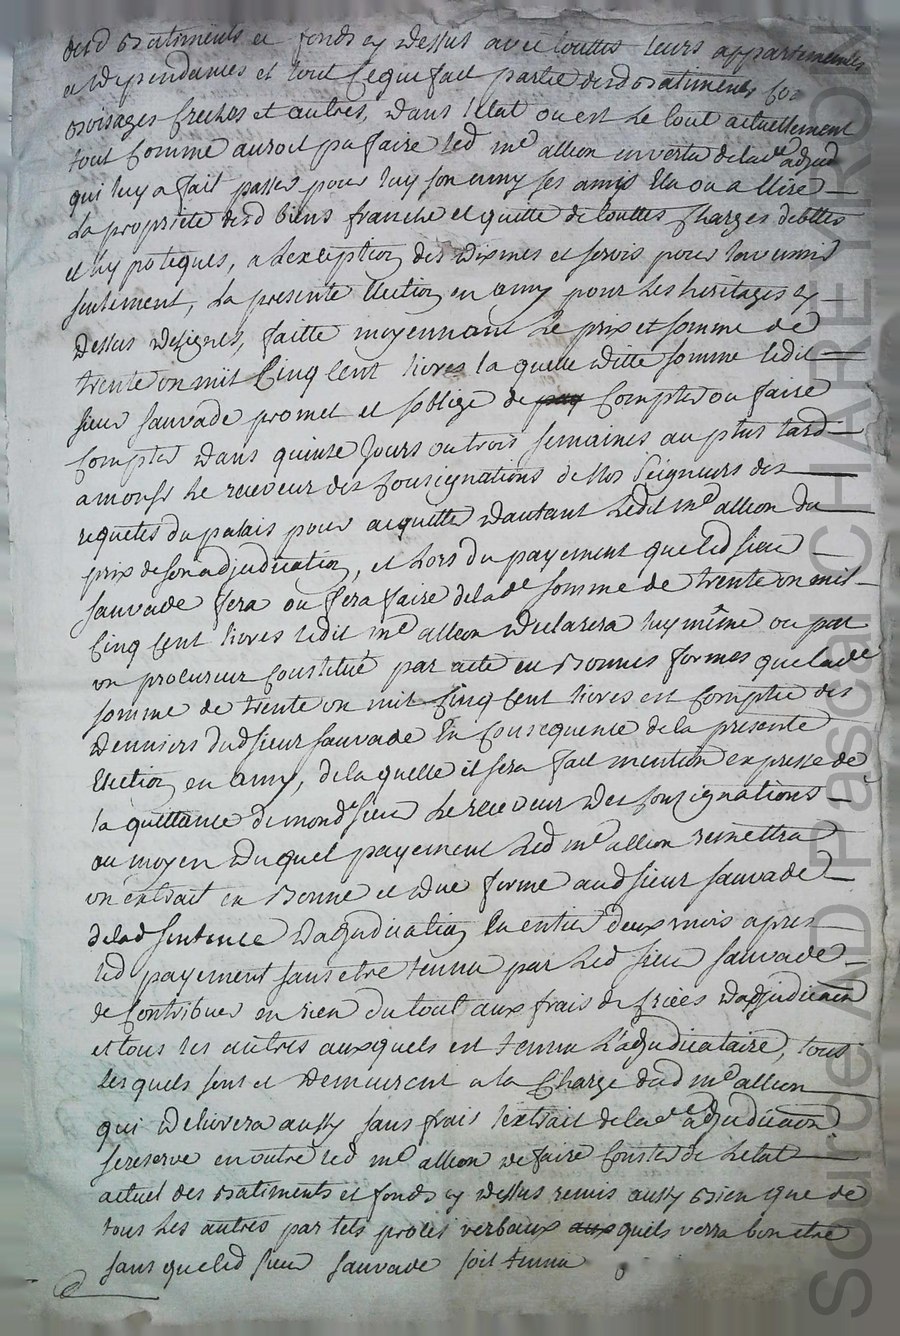 desd batiments et fonds cy dessus avec touttes leurs appartenances
et dependances et tout ce que fait partie desd batiments
boisages creches et autres, dans letat ou est le tout actuellement
tout comme auroit pu faire led me allion en vertu de lade adjud
qui luy a fait passer pour luy son amy ses amis elu ou a elire
la propriete desd biens franche et quitte de touttes charges debttes
et hypoteques, a lexception des dixmes et servis pour lavenir
seulement, la presente election en amy pour les heritages cy
dessus designes, faitte moyennant le prix et somme de
trente un mil cinq cent livres la quelle ditte somme ledit
sieur sauvade promet et soblige de pay compter ou faire
compter dans quinse jours ou trois semaines au plus tard
a monsr le receveur des consignations de Nos Seigneurs des
requetes du palais pour acquitter dautant ledit me allion du
prix de son adjudication, et lors du payement que led sieur
sauvade fera ou fera faire de lade somme de trente un mil
cinq cent livres ledit me allion declarera luy même ou par
un procureur constitué par acte en bonnes formes que lade
somme de trente un mil cinq cent livres est comptee des
denniers dud sieur sauvade en consequence de la presente
election en amy, de la quelle il sera fait mention expresse de
la quittance de mond sieur le receveur des consignations
au moyen duquel payement led me allion remettra
un extrait en bonne et due forme aud sieur sauvade
delad sentence dadjudication en entier deux mois apres
led payement sans etre tennu par led sieur sauvade
de contribuer en rien du tout aux frais de criées dadjudication
et tous les autres auxquels est tennu l'adjudicataire, tous
lesquels sont et demeurent a la charge dud me allion
qui delivrera aussy sans frais lextrait de lade adjudication
se reserve en outre led me allion de faire conster de letat
actuel des batiments et fonds cy dessus remis aussy bien que de
tous les autres par tels procès verbaux aux quils verra bon etre
sans que led sieur sauvade soit tennu
Source AD Pascal CHAREYRON